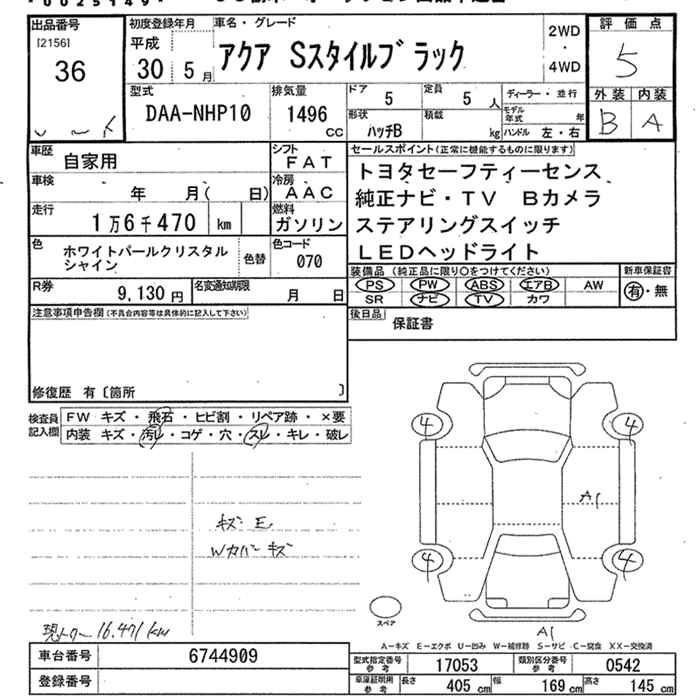 出品番号
[2156]
36
初度登録年月
平成
30 5月
車名・グレード
アクア Sスタイルブラック
2WD
・
4WD
評価点
5
型式
DAA-NHP10
排気量
1496
CC
ドア
5
定員
5 人
形状
ハッチB
積載
kg
ディーラー・並行
モデル年式 年
ハンドル 左・右
外装 内装
B A
車歴
自家用
シフト
FAT
車検
年 月( 日)
冷房
AAC
走行
1万6千470 km
燃料
ガソリン
色
ホワイトパールクリスタル
シャイン
色替
色コード
070
R券
9,130 円
名変通知期限
月 日
セールスポイント(正常に機能するものに限ります)
トヨタセーフティーセンス
純正ナビ・TV Bカメラ
ステアリングスイッチ
LEDヘッドライト
装備品 (純正品に限り○をつけてください)
PS PW ABS エアB AW
SR ナビ TV カワ
新車保証書
有・無
後日品
保証書
注意事項申告欄(不具合内容等は具体的に記入して下さい)
修復歴 有〔箇所 〕
検査員
記入欄
FW キズ・飛石・ヒビ割・リペア跡・×要
内装 キズ・汚レ・コゲ・穴・スレ・キレ・破レ
キズ E
Wカバーキズ
現メーター 16.471km
4 4
A1
4 4
スペア
A1
A-キズ E-エクボ U-凹み W-補修跡 S-サビ C-腐食 XX-交換済
車台番号
6744909
登録番号
型式指定番号
参考
17053
類別区分番号
参考
0542
車庫証明用
参考
長さ 405 cm
幅 169 cm
高さ 145 cm